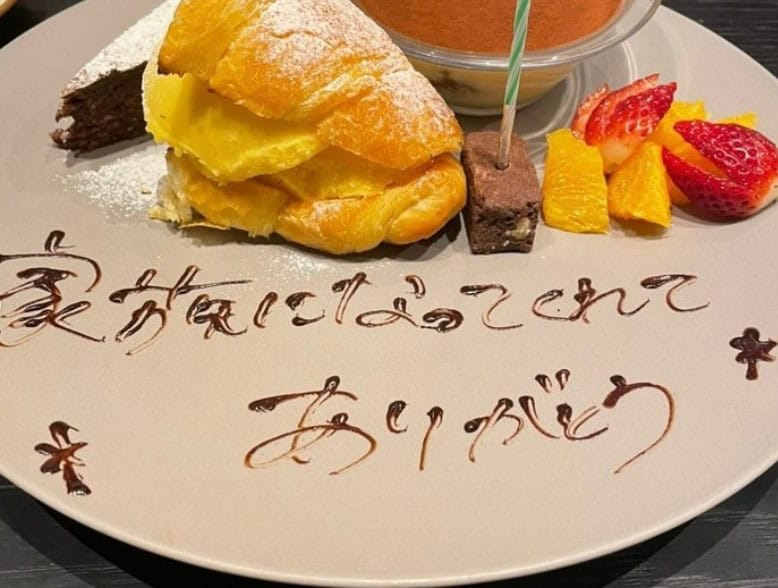 家族になってくれて
ありがとう